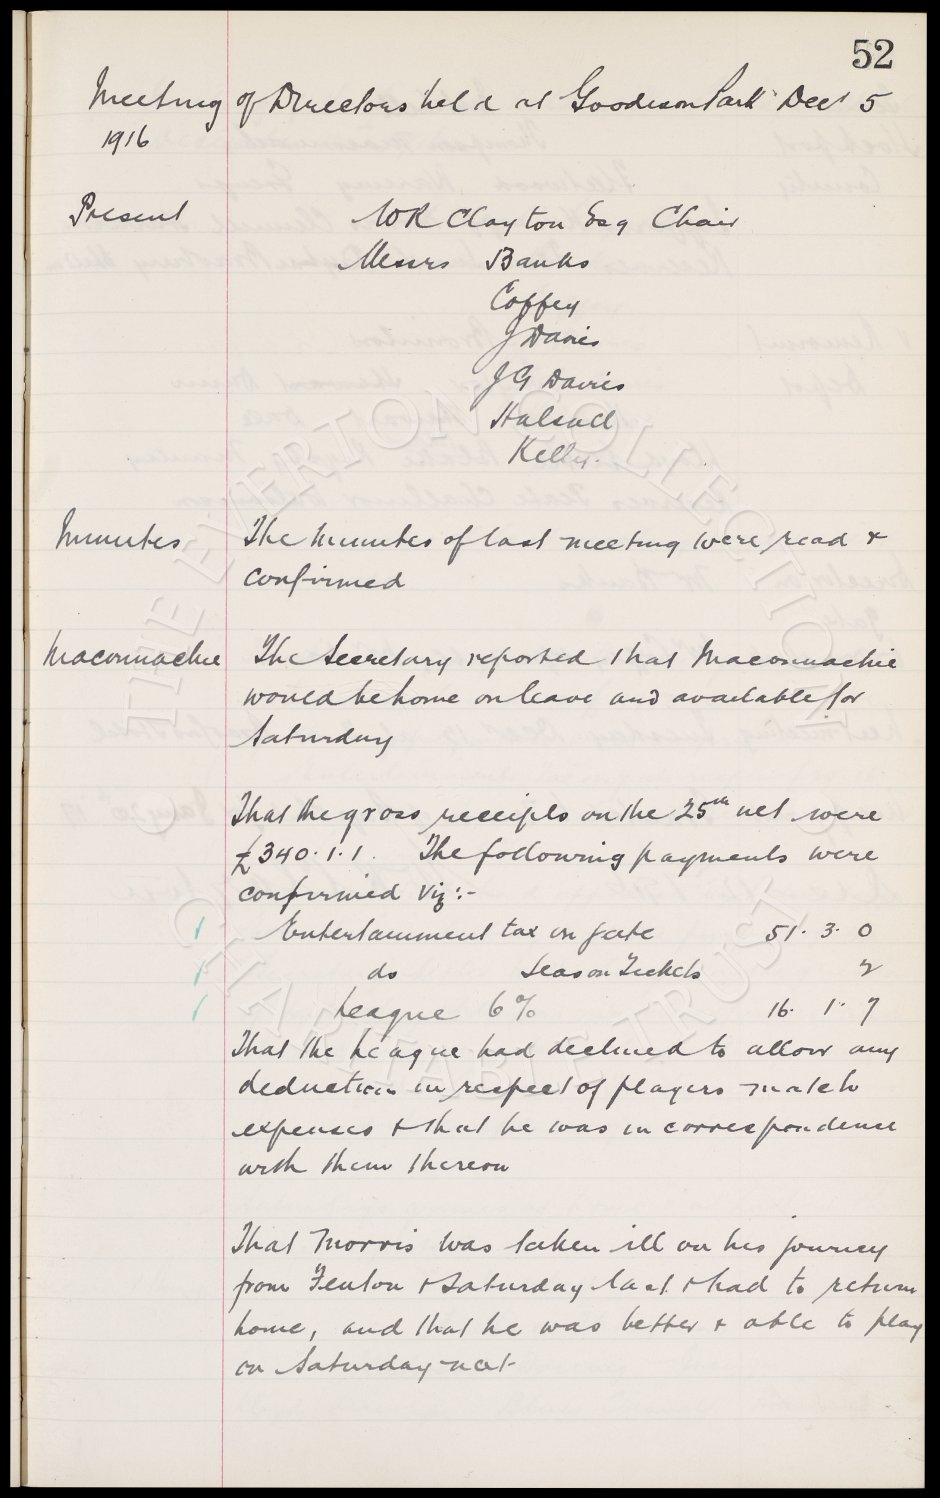 52
Meeting of Directors held at Goodison Park Dec 5
1916
Present W R Clayton Esq Chair
Messrs Banks
Coffey
J Davies
J G Davies
Halsall
Kelly.
Minutes The Minutes of last meeting were read &
confirmed
Maconnachie The Secretary reported that Maconnachie
would be home on leave and available for
Saturday
That the gross receipts on the 25th ult were
£340.1.1. The following payments were
confirmed viz:-
Entertainment tax on gate 51. 3. 0
do Season Tickets 2
League 6% 16. 1. 7
That the League had declined to allow any
deduction in respect of players match
expenses & that he was in correspondence
with them thereon
That Morris was taken ill on his journey
from Fenton & Saturday last & had to return
home, and that he was better & able to play
on Saturday next
THE EVERTON COLLECTION
CHARITABLE TRUST